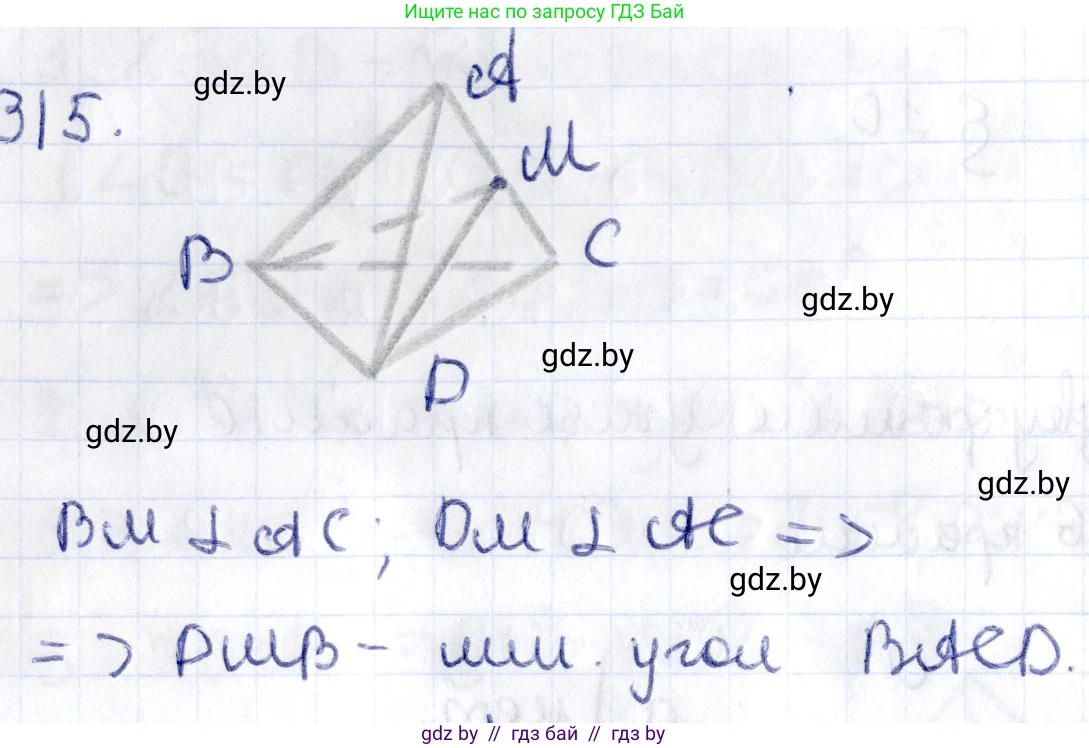 Ищите нас по запросу ГДЗ Бай
315.
gdz.by
A
M
B
C
gdz.by
gdz.by
D
gdz.by
gdz.by
BM ⊥ AC; DM ⊥ AC =>
gdz.by
=> DMB - лин. угол BACD.
gdz.by // гдз бай // гдз by